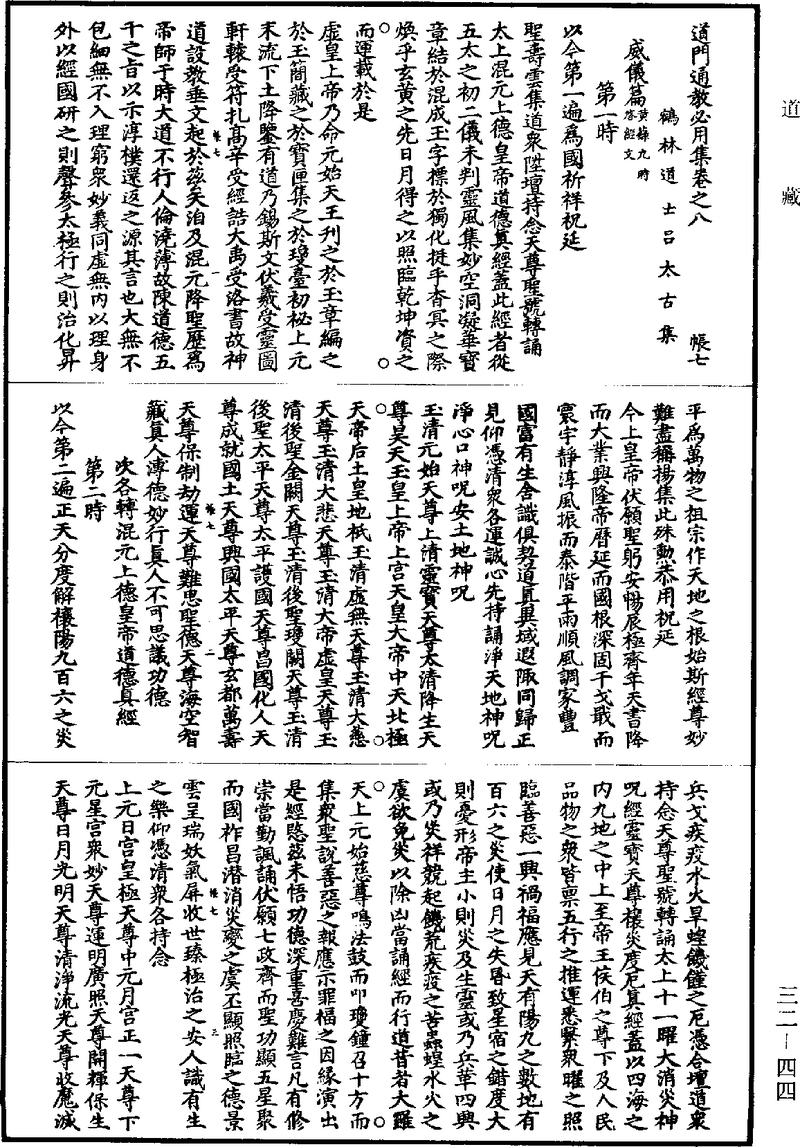 道藏
三二—四四
道門通教必用集卷之八　帳七
鶴林道士呂太古集
威儀篇黃籙九時啓經文
第一時
以今第一遍爲國祈祥祝延
聖壽雲集道衆陞壇持念天尊聖號轉誦
太上混元上德皇帝道德眞經蓋此經者從
五太之初二儀未判靈風集妙空洞凝華寶
章結於混成玉字標於獨化挺乎杳冥之際
煥乎玄黃之先日月得之以照臨乾坤資之
而運載於是
虛皇上帝乃命元始天王刋之於玉章編之
於玉簡藏之於寶匣集之於瓊臺初秘上元
末流下土降鑒有道乃錫斯文伏羲受靈圖
軒轅受符扎高辛受經誥大禹受洛書故神
道設敎垂文起於兹矣洎及混元降聖歷爲
帝師于時大道不行人倫澆薄故陳道德五
千之旨以示淳樸還返之源其言也大無不
包細無不入理窮衆妙義同虛無內以理身
外以經國研之則聲參太極行之則治化昇
平爲萬物之祖宗作天地之根始斯經尊妙
難盡稱揚集此殊勳恭用祝延
今上皇帝伏願聖躬安暢辰極齊年天書降
而大業興隆帝曆延而國根深固干戈戢而
寰宇靜淳風振而泰階平雨順風調家豐
國富有生含識俱契道眞異域遐陬同歸正
見仰憑清衆各運誠心先持誦淨天地神呪
淨心口神呪安土地神呪
玉清元始天尊上清靈寶天尊太清降生天
尊昊天玉皇上帝上宮天皇大帝中天北極
天帝后土皇地祇玉清虛無天尊玉清大慈
天尊玉清大悲天尊玉清大帝虛皇天尊玉
清後聖金闕天尊玉清後聖瓊闕天尊玉清
後聖太平天尊太平護國天尊昌國化人天
尊成就國土天尊興國太平天尊玄都萬壽
天尊保制劫運天尊難思聖德天尊海空智
藏眞人溥德妙行眞人不可思議功德
次各轉混元上德皇帝道德眞經
第二時
以今第二遍正天分度解禳陽九百六之災
兵戈疾疫水火旱蝗饑饉之厄憑合壇道衆
持念天尊聖號轉誦太上十一曜大消災神
呪經靈寶天尊禳災度厄眞經蓋以四海之
內九地之中上至帝王侯伯之尊下及人民
品物之衆皆禀五行之推運悉繫衆曜之照
臨善惡一興禍福應見天有陽九之數地有
百六之災使日月之失昬致星宿之錯度大
則憂形帝主小則災及生靈或乃兵革四興
或乃災祥競起饑荒疾疫之苦蟲蝗水火之
虞欲免災以除凶當誦經而行道昔者大羅
天上元始慈尊鳴法鼓而叩瓊鐘召十方而
集衆聖說善惡之報應示罪福之因緣演出
是經愍兹未悟功德深重喜慶難言凡有修
崇當勤諷誦伏願七政齊而聖功顯五星聚
而國祚昌潛消災變之虞丕顯照臨之德景
雲呈瑞妖氣屏收世臻極治之安人識有生
之樂仰憑清衆各持念
上元日宮皇極天尊中元月宮正一天尊下
元星宮衆妙天尊運明廣照天尊開輝保生
天尊日月光明天尊清淨流光天尊收魔滅